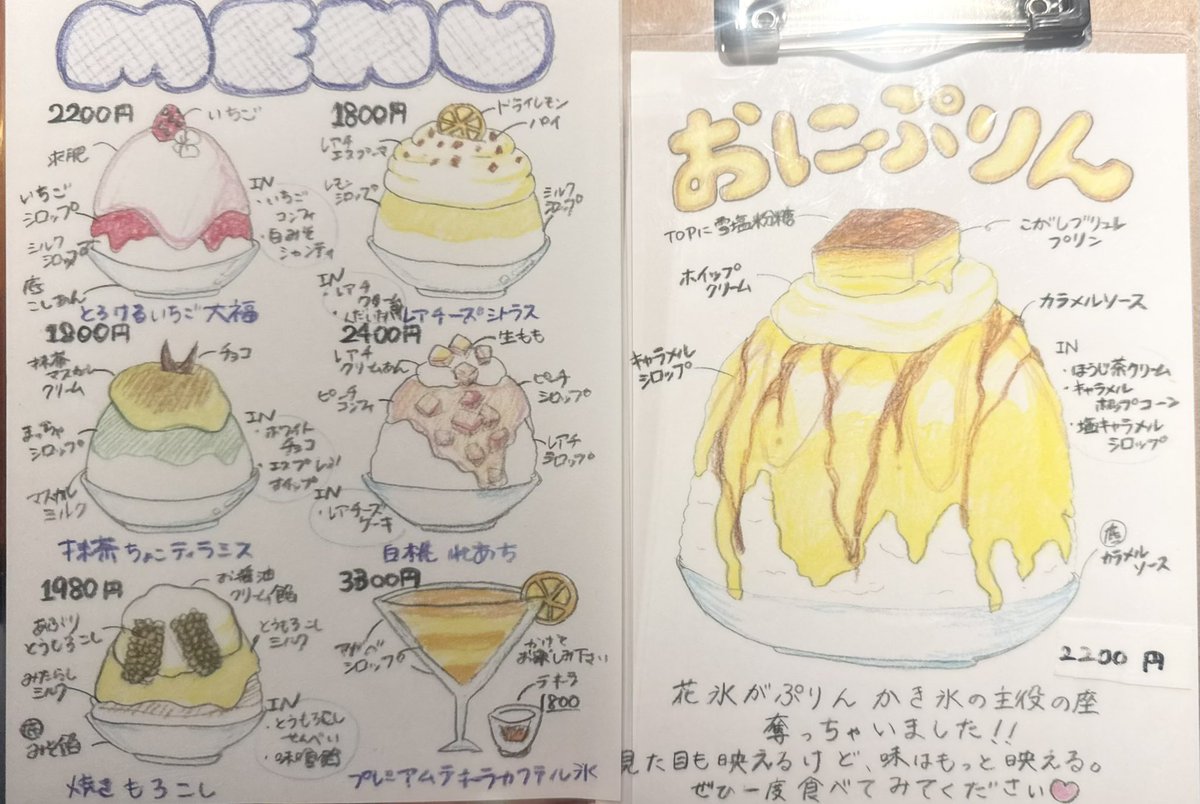 MENU
2200円
いちご
求肥
いちご
シロップ
ミルク
シロップ
底
こしあん
IN
・いちご
コンフィ
・白みそ
シャンティ
とろけるいちご大福
1800円
ドライレモン
パイ
レアチ
エスプーマ
レモン
シロップ
ミルク
シロップ
IN
・レアチ
クリーム
レアチーズシトラス
1800円
チョコ
抹茶
マスカル
クリーム
まっちゃ
シロップ
マスカル
ミルク
IN
・ホワイト
チョコ
・エスプレッソ
ホイップ
抹茶ちょこティラミス
2400円
生もも
レアチ
クリームあん
ピーチ
コンフィ
ピーチ
シロップ
レアチ
シロップ
IN
・レアチーズ
ケーキ
白桃れあち
1980円
お醤油
クリーミィ餡
あぶり
とうもろこし
とうもろこし
ミルク
みたらし
ミルク
底
みそ餡
IN
・とうもろこし
せんべい
焼きもろこし
3300円
アガベ
シロップ
かけて
お楽しみ下さい
テキーラ
1800
プレミアムテキーラカクテル氷
おにぷりん
TOPに雪塩粉糖
こがしブリュレ
プリン
ホイップ
クリーム
カラメルソース
キャラメル
シロップ
IN
・ほうじ茶クリーム
・キャラメル
ポップコーン
・塩キャラメル
シロップ
底
カラメル
ソース
2200円
花氷がぷりん かき氷の主役の座
奪っちゃいました!!
見た目も映えるけど、味はもっと映える。
ぜひ一度食べてみてください♡